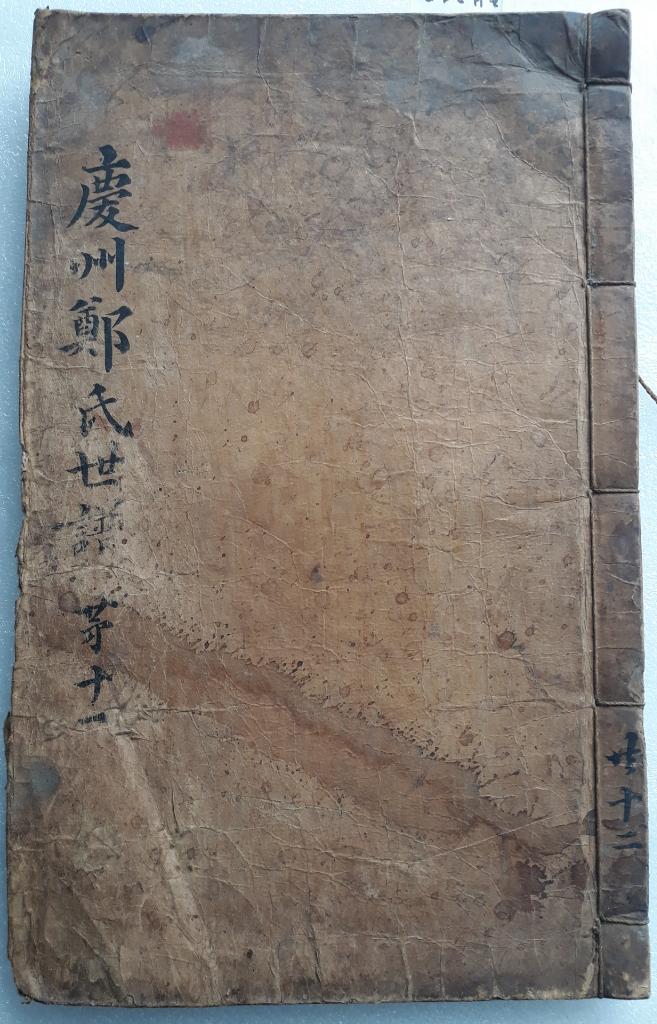 慶州鄭氏世譜 苐十一
共十二